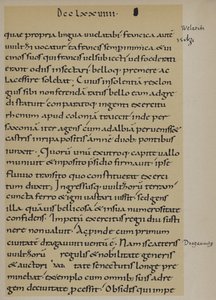 Dcclxxxviiii.
quae propria lingua uuelatabi francica autē
uuiltzi uocatur Ea francis semp inimica & ui
cinos suos qui francis uel subiecti uel foederati
erant odiis insectari belloq. premere ac
lacessire solebat. Cuius insolentiā rex lon
gius sibi non ferendā ratus bello eam adgre
di statuit comparatoq. ingenti exercitu
rhenum apud coloniā traiecit inde per
saxoniā iter agens cum ad albiā peruenisset
castris in ripa positis amnē duob. pontibus
iunxit. quorū unū ex utroq. capite uallo
muniuit & inposito psidio firmauit ipse
fluuio transito quo constituerat exerci
tum duxit, Ingressusq. uuiltzorū terram
cuncta ferro & igni uastari iussit. sed gens
illa quāuis bellicosa & in sua numerositate
confidens Impetū exercitus regii diu susti
nere non ualuit. Ac pinde cum primum
ciuitatē dragauuiti uentū ē. Nam is ceteris
uuiltzorū regulis & nobilitate generis
& auctori ta te senectutis longe pre
minebat
Obsides qui impe
Welatabi
Dragauuit